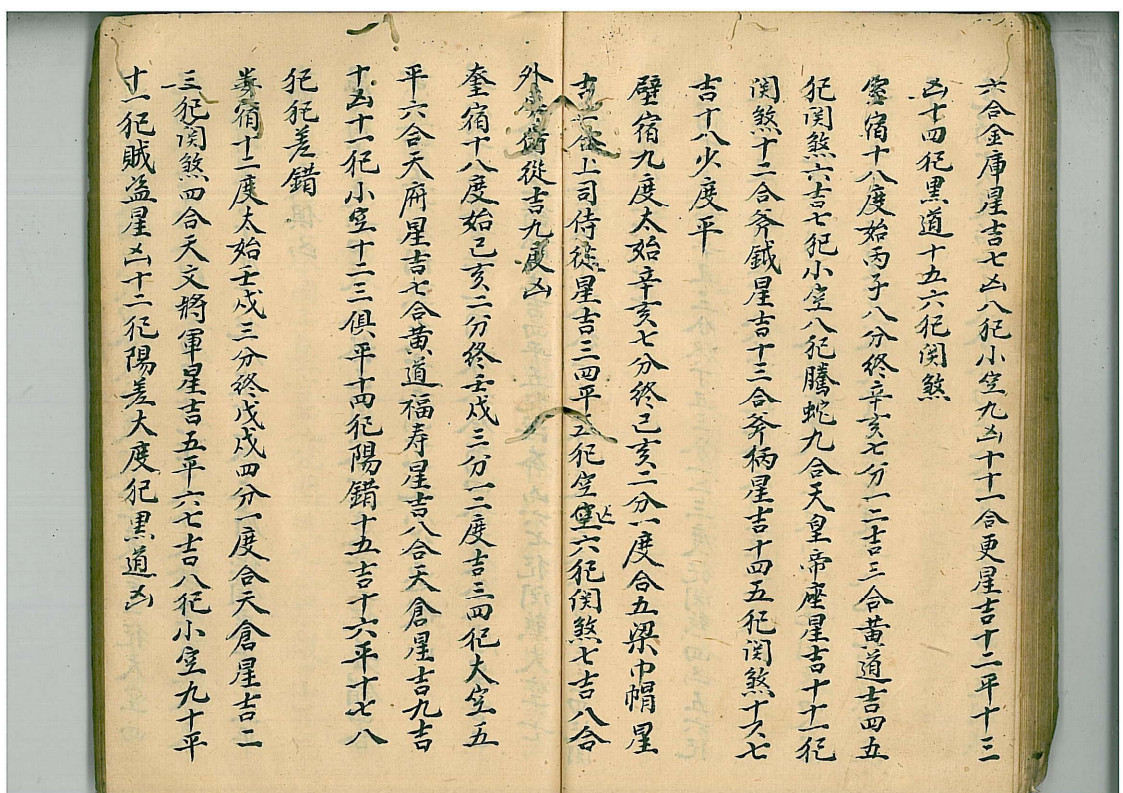 六合金庫星吉七凶八犯小空九凶十十一合更星吉十二平十三
凶十四犯黑道十五六犯関煞
室宿十八度始丙子八分终辛亥七分一二吉三合黄道吉四五
犯関煞六吉七犯小空八犯騰蛇九合天皇帝座星吉十十一犯
関煞十二合斧鉞星吉十三合斧柄星吉十四五犯関煞十六七
吉十八少度平
壁宿九度太始辛亥七分终己亥二分一度合五梁巾帽星
吉二合上司侍從星吉三四平五犯空六犯関煞七吉八合
外從吉九度凶
奎宿十八度始己亥二分终壬戌三分一二度吉三四犯大空五
平六合天府星吉七合黄道福寿星吉八合天倉星吉九吉
十凶十一犯小空十二三俱平十四犯陽錯十五吉十六平十七八
犯犯差錯
婁宿十二度太始壬戌三分终戊戌四分一度合天倉星吉二
三犯関煞四合天文將軍星吉五平六七吉八犯小空九十平
十一犯賊盗星凶十二犯陽差大度犯黑道凶